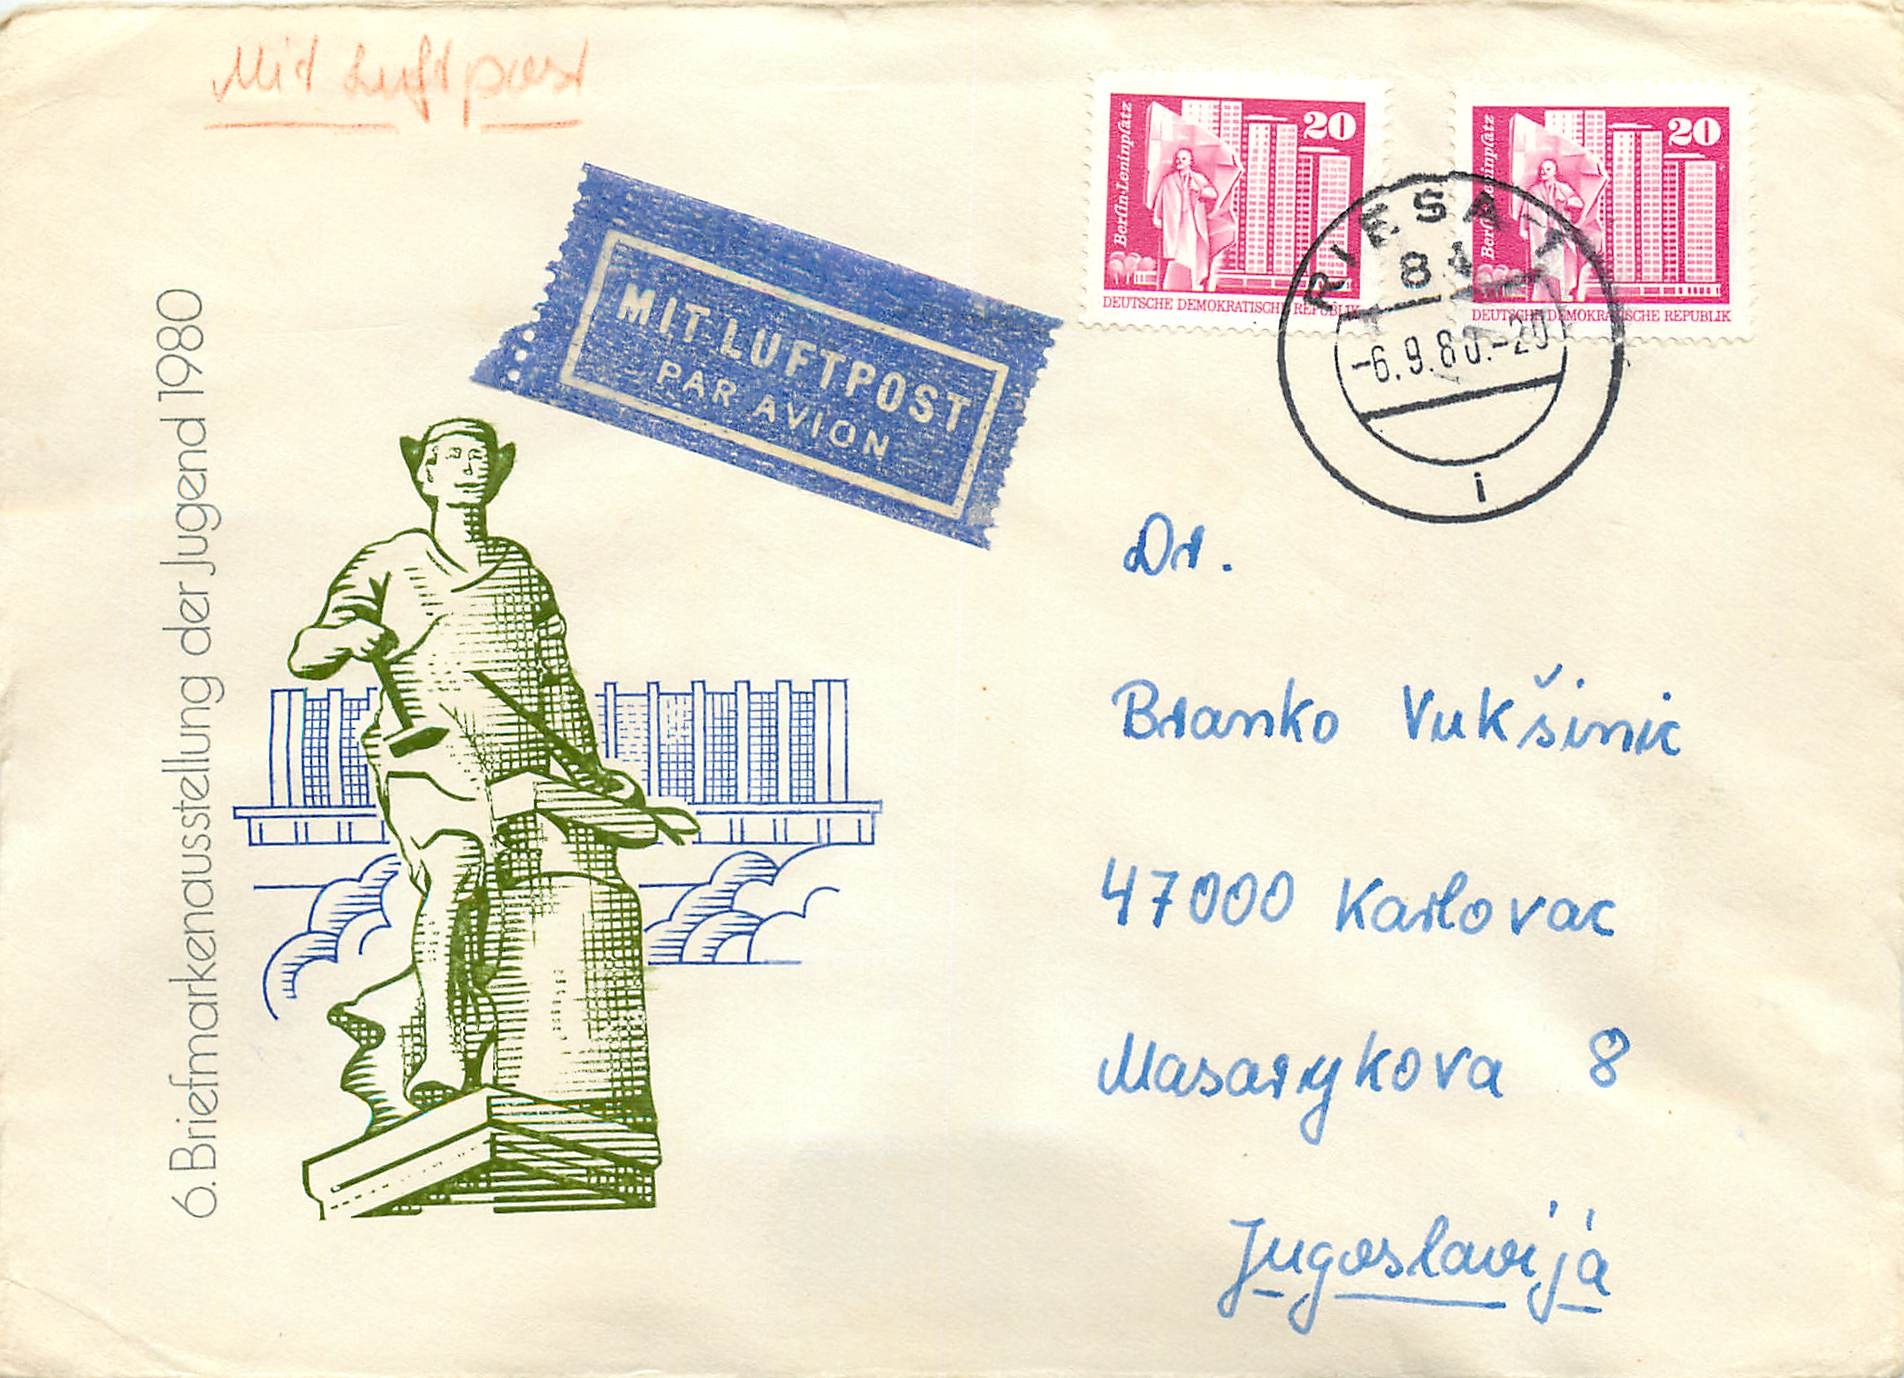 Mit Luftpost
Berlin-Leninplatz
20
DEUTSCHE DEMOKRATISCHE REPUBLIK
Berlin-Leninplatz
20
DEUTSCHE DEMOKRATISCHE REPUBLIK
RIESA 1
84
-6.9.80.-20
i
MIT LUFTPOST
PAR AVION
6. Briefmarkenausstellung der Jugend 1980
Dr.
Branko Vukšinic
47000 Karlovac
Masarykova 8
Jugoslavija